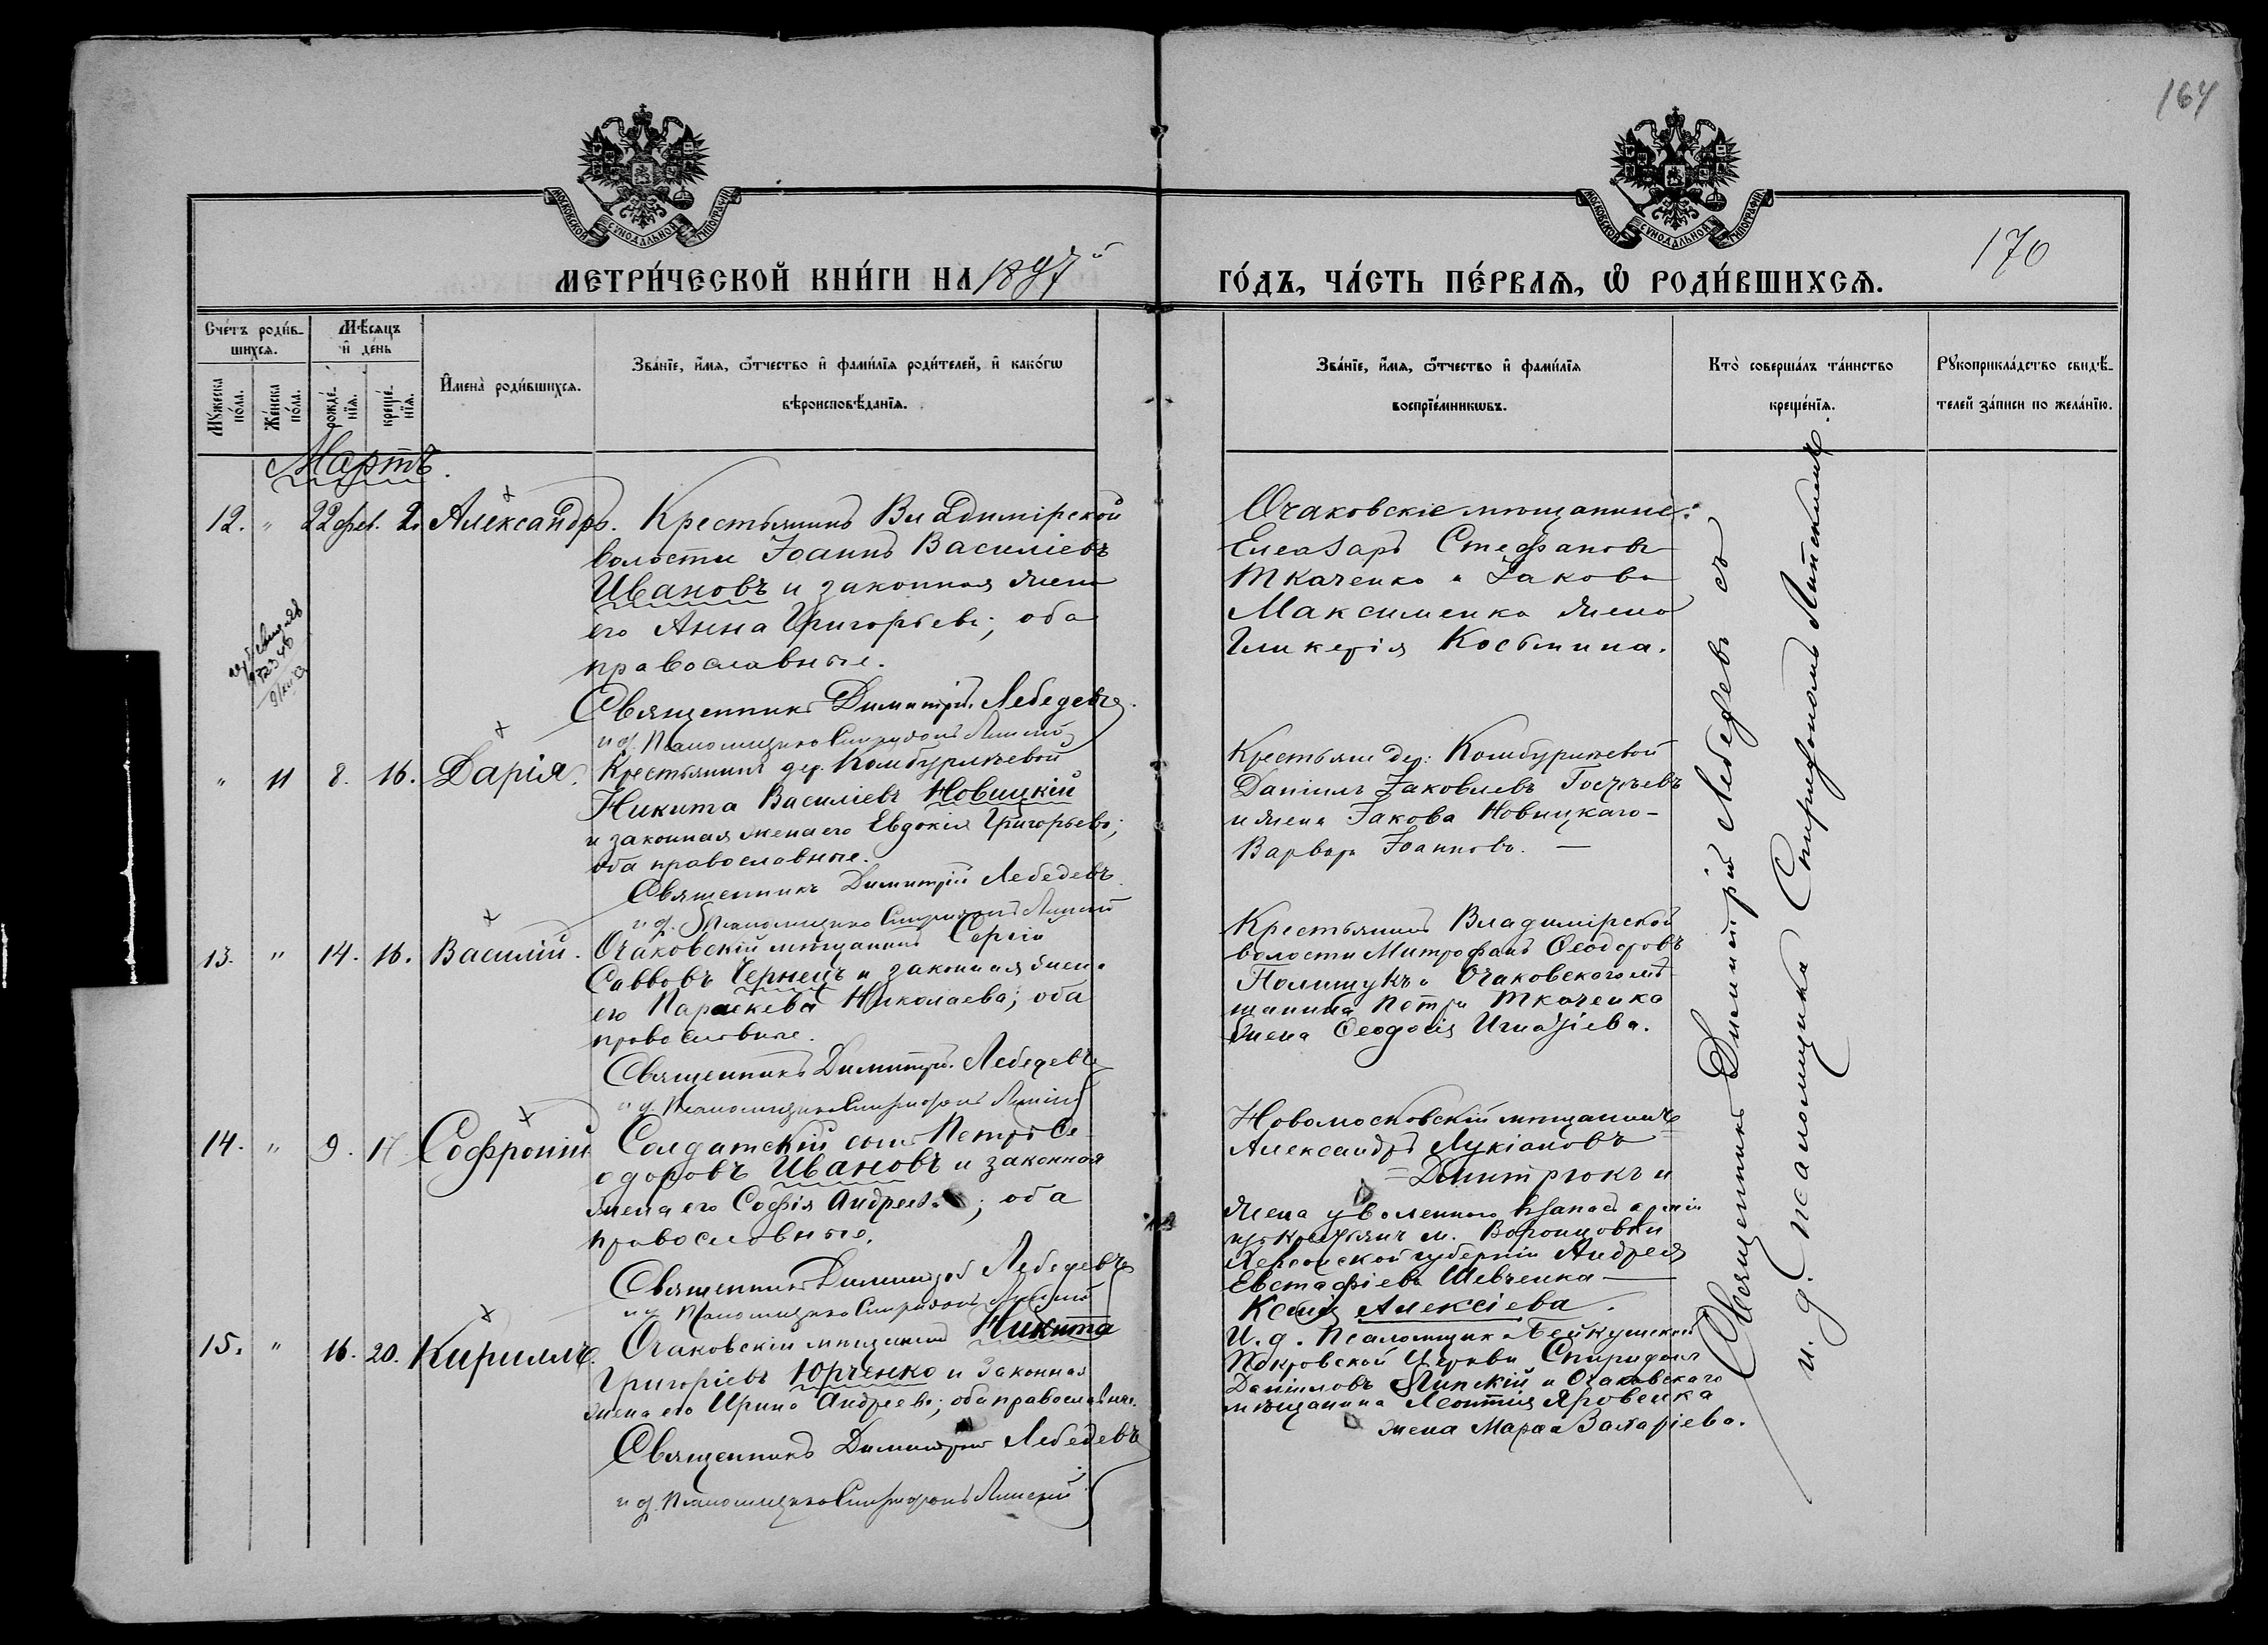 164
МОСКОВСКОЙ СѴНОДАЛЬНОЙ ТИПОГРАФІИ
МОСКОВСКОЙ СѴНОДАЛЬНОЙ ТИПОГРАФІИ
170
МЕТРИ́ЧЕСКОЙ КНИ́ГИ НА 1897й
ГО́ДЪ, ЧА́СТЬ ПЕ́РВАѦ, Ѡ РОДИ́ВШИХСѦ.
Сче́тъ роди́в-
шихсѧ.
Мѣ́сѧцъ
и҆ де́нь
Мꙋ́жеска по́ла.
Же́нска по́ла.
рожде́-
нїѧ.
креще́-
нїѧ.
И҆мена̀ роди́вшихсѧ.
Зва́нїе, и҆́мѧ, ѻ҆́тчество и҆ фами́лїѧ роди́телей, и҆ како́гѡ
вѣроисповѣ́данїѧ.
Зва́нїе, и҆́мѧ, ѻ҆́тчество и҆ фами́лїѧ
воспрїе́мникѡвъ.
Кто̀ соверша́лъ та́инство
креще́нїѧ.
Рꙋкоприкла́дство свидѣ́-
телей за́писи по жела́нїю.
Мартъ.
12. " 22 фев. 2. Александръ.
Крестьянинъ Владимірской
волости Іоаннъ Василіевъ
Ивановъ и законная жена
его Анна Григорьева; оба
православные.
Священникъ Димитрій Лебедевъ
и д. Псаломщика Спиридонъ Липскій
Очаковскіе мѣщанине:
Елеазаръ Стефановъ
Ткаченко и Іакова
Максименка жена
Гликерія Косьмина.
" 11 8. 16. Дарія.
Крестьянинъ дер. Комбурліевой
Никита Василіевъ Новицкій
и законная жена его Евдокія Григорьева;
оба православные.
Священникъ Димитрій Лебедевъ
и д. Псаломщика Спиридонъ Липскій
Крестьяне дер: Комбурліевой
Даніилъ Іаковлевъ
и жена Іакова Новицкаго –
Варвара Іоаннова. —
13. " 14. 16. Василій.
Очаковскій мѣщанинъ Сергій
Саввовъ Чернецъ и законная жена
его Параскева Николаева; оба
православные.
Священникъ Димитрій Лебедевъ
и д. Псаломщика Спиридонъ Липскій
Крестьянинъ Владимірской
волости Митрофанъ Ѳеодоровъ
Полищукъ и Очаковскаго мѣ
щанина Петра Ткаченка
жена Ѳеодосія Игнатіева.
14. " 9. 17 Софроній
Солдатскій сынъ Петръ Ѳе
одоровъ Ивановъ и законная
жена его Софія Андреева; оба
православные.
Священникъ Димитрій Лебедевъ
и д. Псаломщика Спиридонъ Липскій
Новомосковскій мѣщанинъ
Александръ Лукіановъ
= Дмитрюкъ и
жена уволеннаго въ запасъ арміи
м. Воронцовки
Херсонской губерніи Андрея
Евстафіева Шевченка —
Ксенія Алексіева.
15. " 16. 20. Кириллъ.
Очаковскій мѣщанинъ Никита
Григоріевъ Юрченко и законная
жена его Ирина Андреева; оба православные.
Священникъ Димитрій Лебедевъ
и д. Псаломщика Спиридонъ Липскій
И. д. Псаломщика Бейкушской
Покровской Церкви Спиридонъ
Даніиловъ Липскій и Очаковскаго
мѣщанина Леонтія Яровенка
жена Марѳа Захаріева.
Священникъ Димитрій Лебедевъ съ
и. д. псаломщика Спиридономъ Липскимъ.